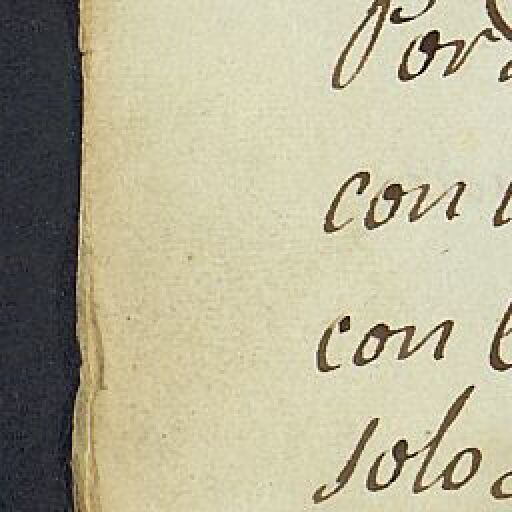 Por
con
con
solo